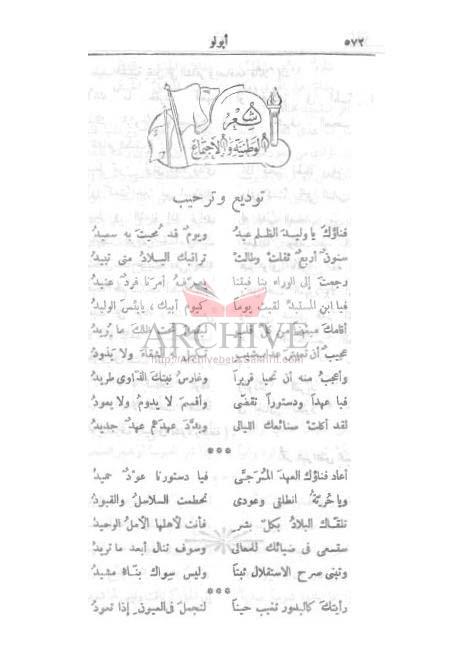 ٥٧٢
أبولو
شعر
الوطنية والاجتماع
توديع وترحيب
فناؤك يا وليدَ الظلم عيدُ ويومٌ قد مُحيتَ به سعيدُ
سنونٌ أربعٌ ثقلتْ وطالتْ تراقبك البلادُ متى تبيدُ
رجعتَ إلى الوراء بنا فبتنا يصرّف أمرنا فردٌ عنيدُ
فيا ابن المستبدِّ لقيت يوماً كيوم أبيك ، يا بئس الوليدُ
أقامك
عجيبٌ أن ولا يذودُ
وأعجبُ منه أن تحيا قريراً وغارسُ نبتك الذاوي طريدُ
فيا عهداً ودستوراً تقضّى وأقسم لا يدومُ ولا يعودُ
لقد أكلتْ صنائعك الليالى وبدَّد عهدهم عهدٌ جديدُ
***
أعاد فناؤك العهدَ المُرَجّى فيا دستورنا عوْدٌ حميدُ
ويا حُريّةُ انطلقى وعودى تحطمت السلاسلُ والقيودُ
تلقّاك البلادُ بكلّ بشرٍ فأنت لأهلها الأملُ الوحيدُ
سنسعى فى ضيائك للمعالى وسوف تنال أبعدَ ما تريدُ
وتبنى صرح الاستقلال ثبتاً وليس سواك بنّاهُ مشيدُ
***
رأيتك كالبدور تغيب حيناً لتجملَ فى العيونِ إذا تعودُ
ARCHIVE
http://Archivebeta.Sakhrit.com